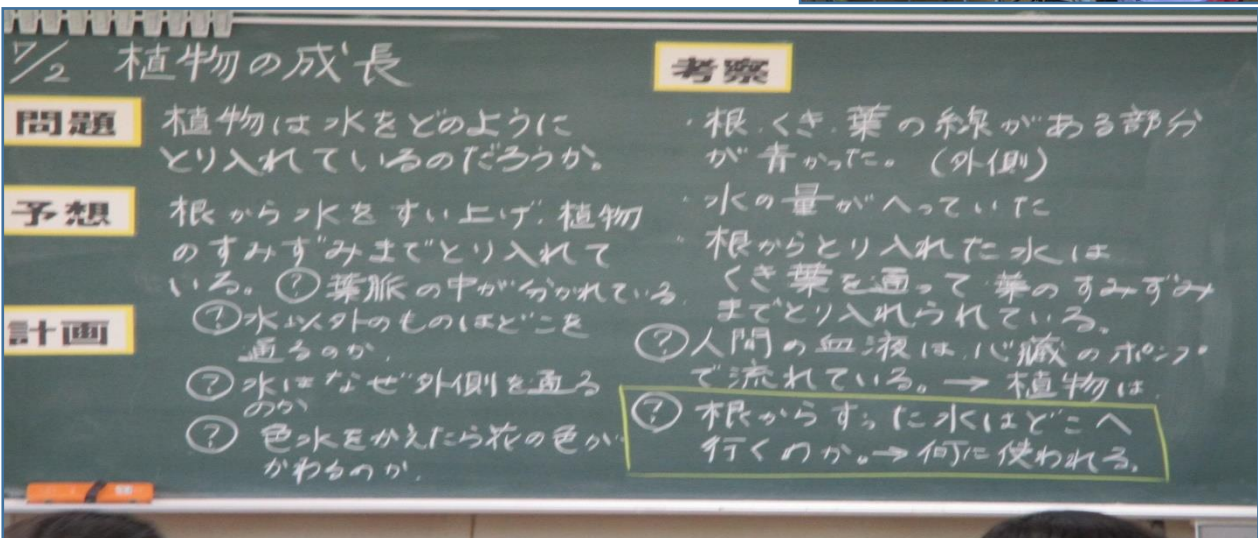 7/2 植物の成長
問題
植物は水をどのように
とり入れているのだろうか。
予想
根から水をすい上げ、植物
のすみずみまでとり入れて
いる。?葉脈の中が分かれている
計画
?水以外のものはどこを
通るのか、
?水はなぜ外側を通る
のか
?色水をかえたら花の色が
かわるのか、
考察
・根、くき、葉の線がある部分
が青かった。(外側)
・水の量がへっていた
・根からとり入れた水は
くき葉を通って葉のすみずみ
までとり入れられている。
?人間の血液は、心臓のポンプ
で流れている。→植物は
?根からすった水はどこへ
行くのか。→何に使われる。